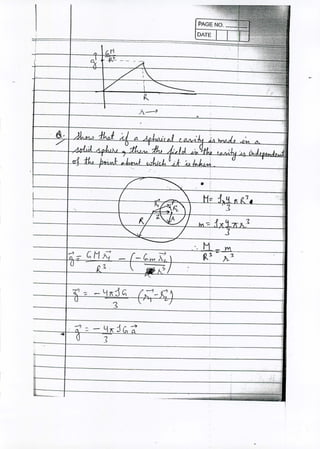 PAGE NO.
DATE
g
GM
R²
R
r →
Q. Show that if a spherical cavity is made in a
solid sphere, then the field in the cavity is independent
of the point about which it is taken.
R
M = ρ x 4/3 π R³
m = ρ x 4/3 π r³
∴ M/R³ = m/r³
g⃗ = GM r⃗₁/R³ - (- Gm r⃗₂/r³)
g⃗ = - 4πρG/3 (r⃗₁ - r⃗₂)
g⃗ = - 4πρG a⃗/3